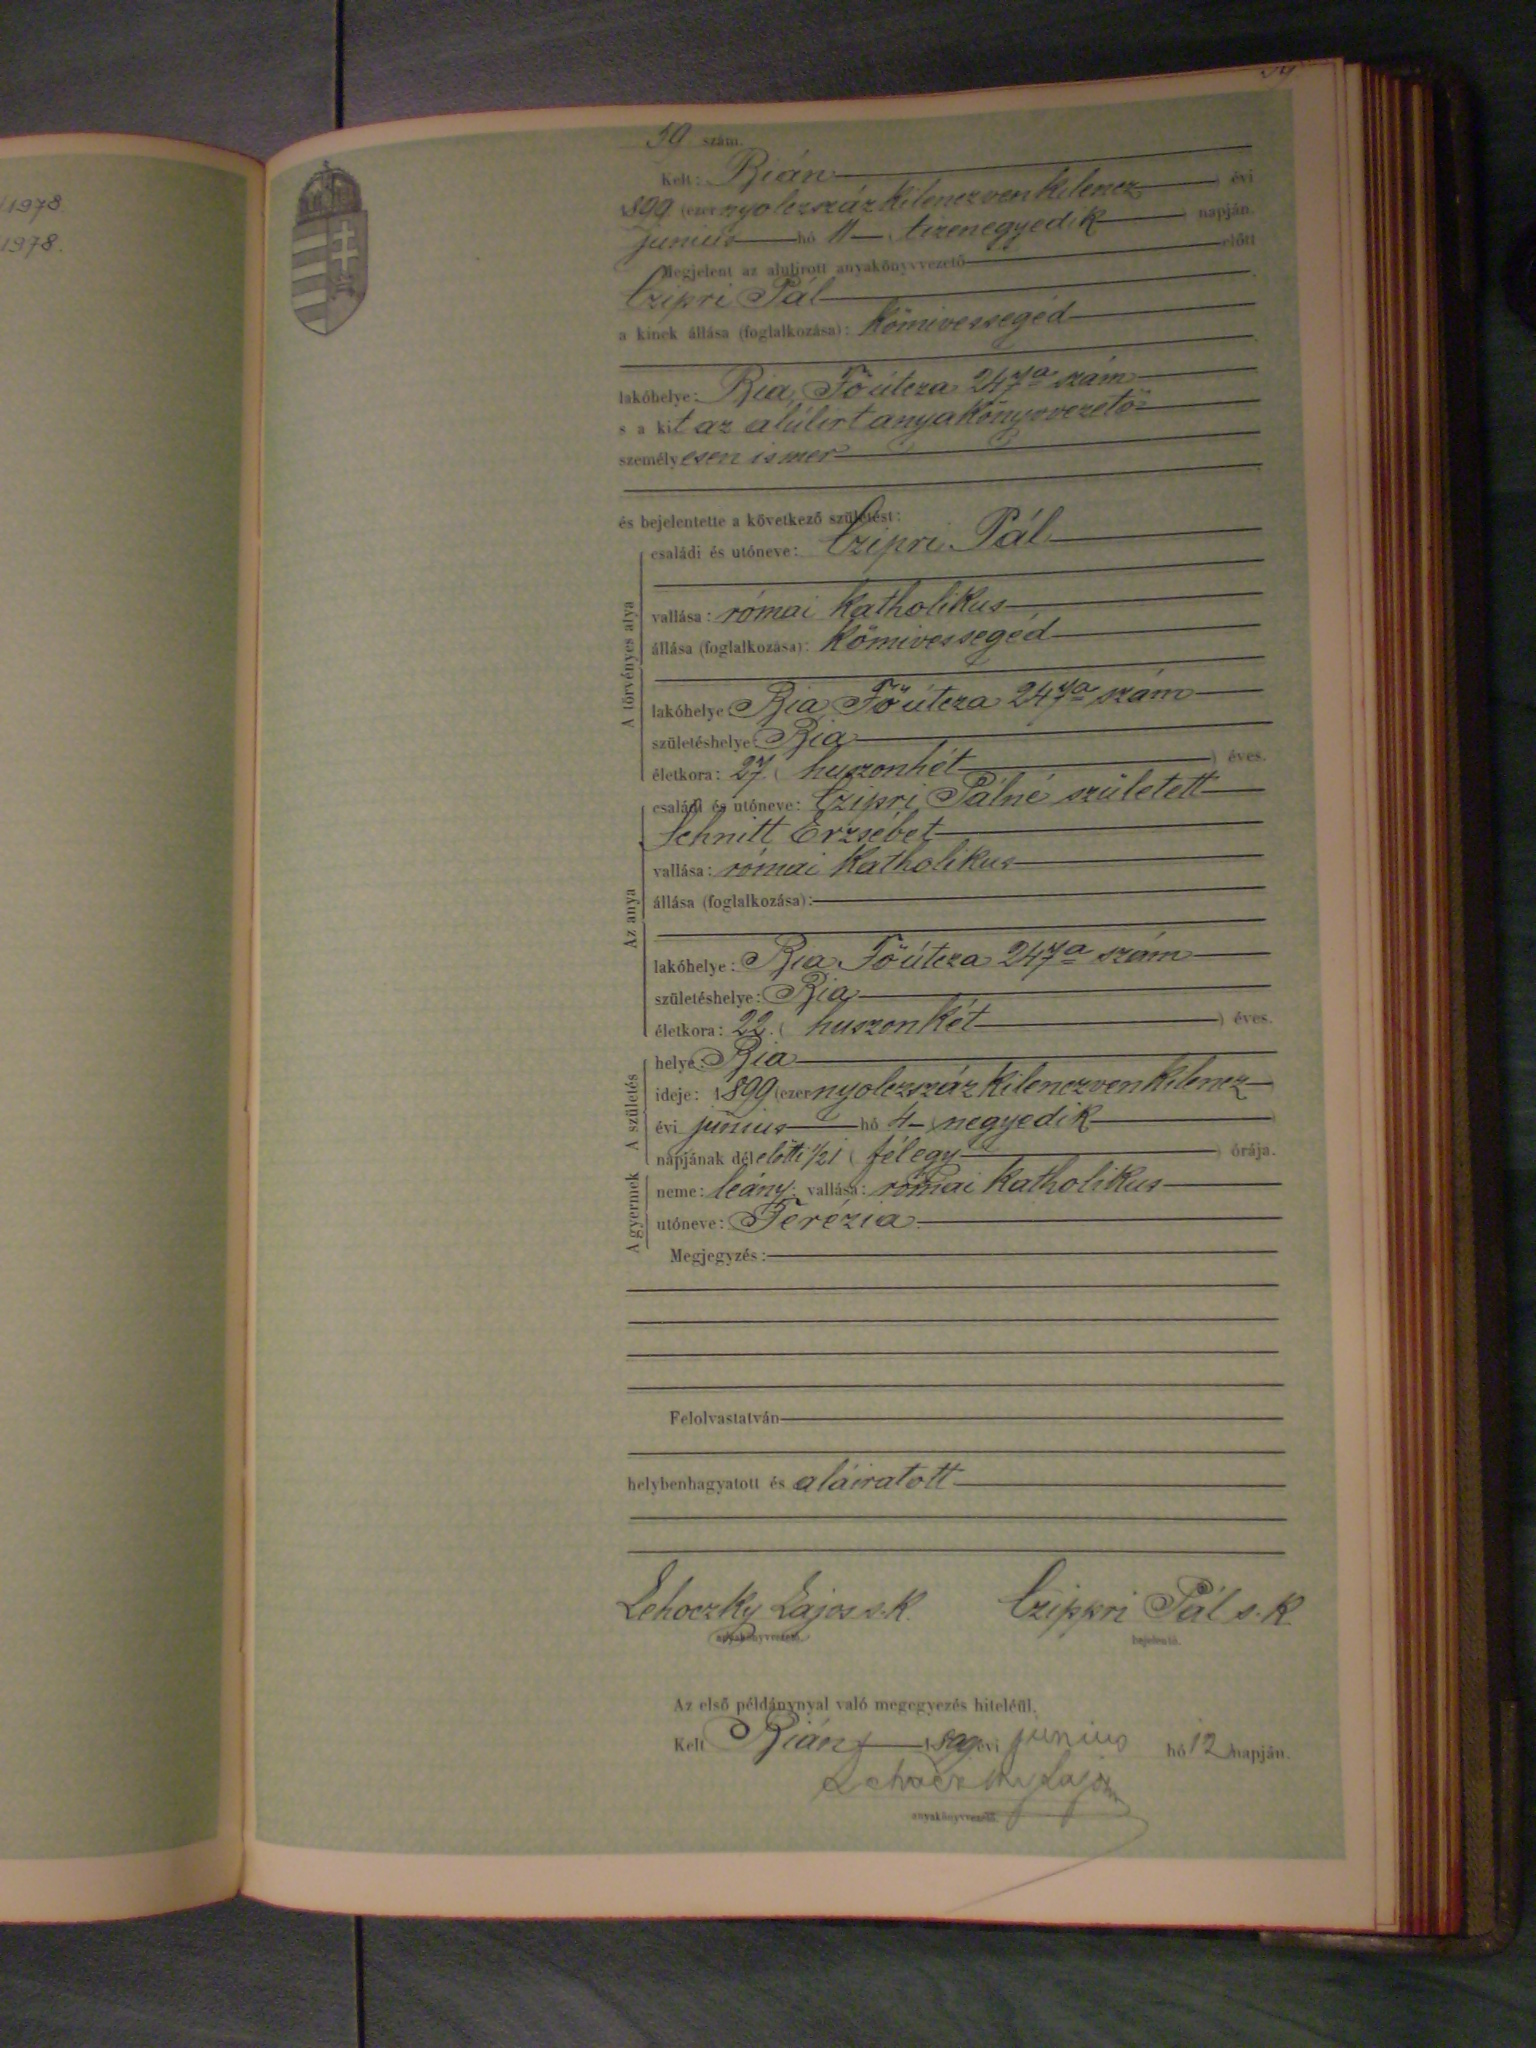 1978
1978.
59
59 szám.
Kelt: Bián
1899 (ezernyolczszázkilenczvenkilencz) évi
junius hó 11 (tizenegyedik) napján.
Megjelent az alulirott anyakönyvvezető előtt
Czipri Pál
a kinek állása (foglalkozása): kőmivessegéd
lakóhelye: Bia, Főútcza 247a szám
s a kit az alúlirt anyakönyvvezető
személyesen ismer
és bejelentette a következő születést:
A törvényes atya
családi és utóneve: Czipri Pál
vallása: római katholikus
állása (foglalkozása): kőmivessegéd
lakóhelye: Bia Főútcza 247a szám
születéshelye: Bia
életkora: 27 (huszonhét) éves.
Az anya
családi és utóneve: Czipri Pálné született
Schnitt Erzsébet
vallása: római katholikus
állása (foglalkozása):
lakóhelye: Bia Főútcza 247a szám
születéshelye: Bia
életkora: 22. (huszonkét) éves.
A születés
helye: Bia
ideje: 1899 (ezernyolczszázkilenczvenkilencz
évi junius hó 4 (negyedik)
napjának délelőtti 1/21 (félegy) órája.
A gyermek
neme: leány. vallása: római katholikus
utóneve: Terézia
Megjegyzés:
Felolvastatván
helybenhagyatott és aláiratott
Lehoczky Lajos s.k. Czippri Pál s.k.
anyakönyvvezető. bejelentő.
Az első példánynyal való megegyezés hiteléül.
Kelt Bián, 1899 évi junius hó 12 napján.
Lehoczky Lajos
anyakönyvvezető.